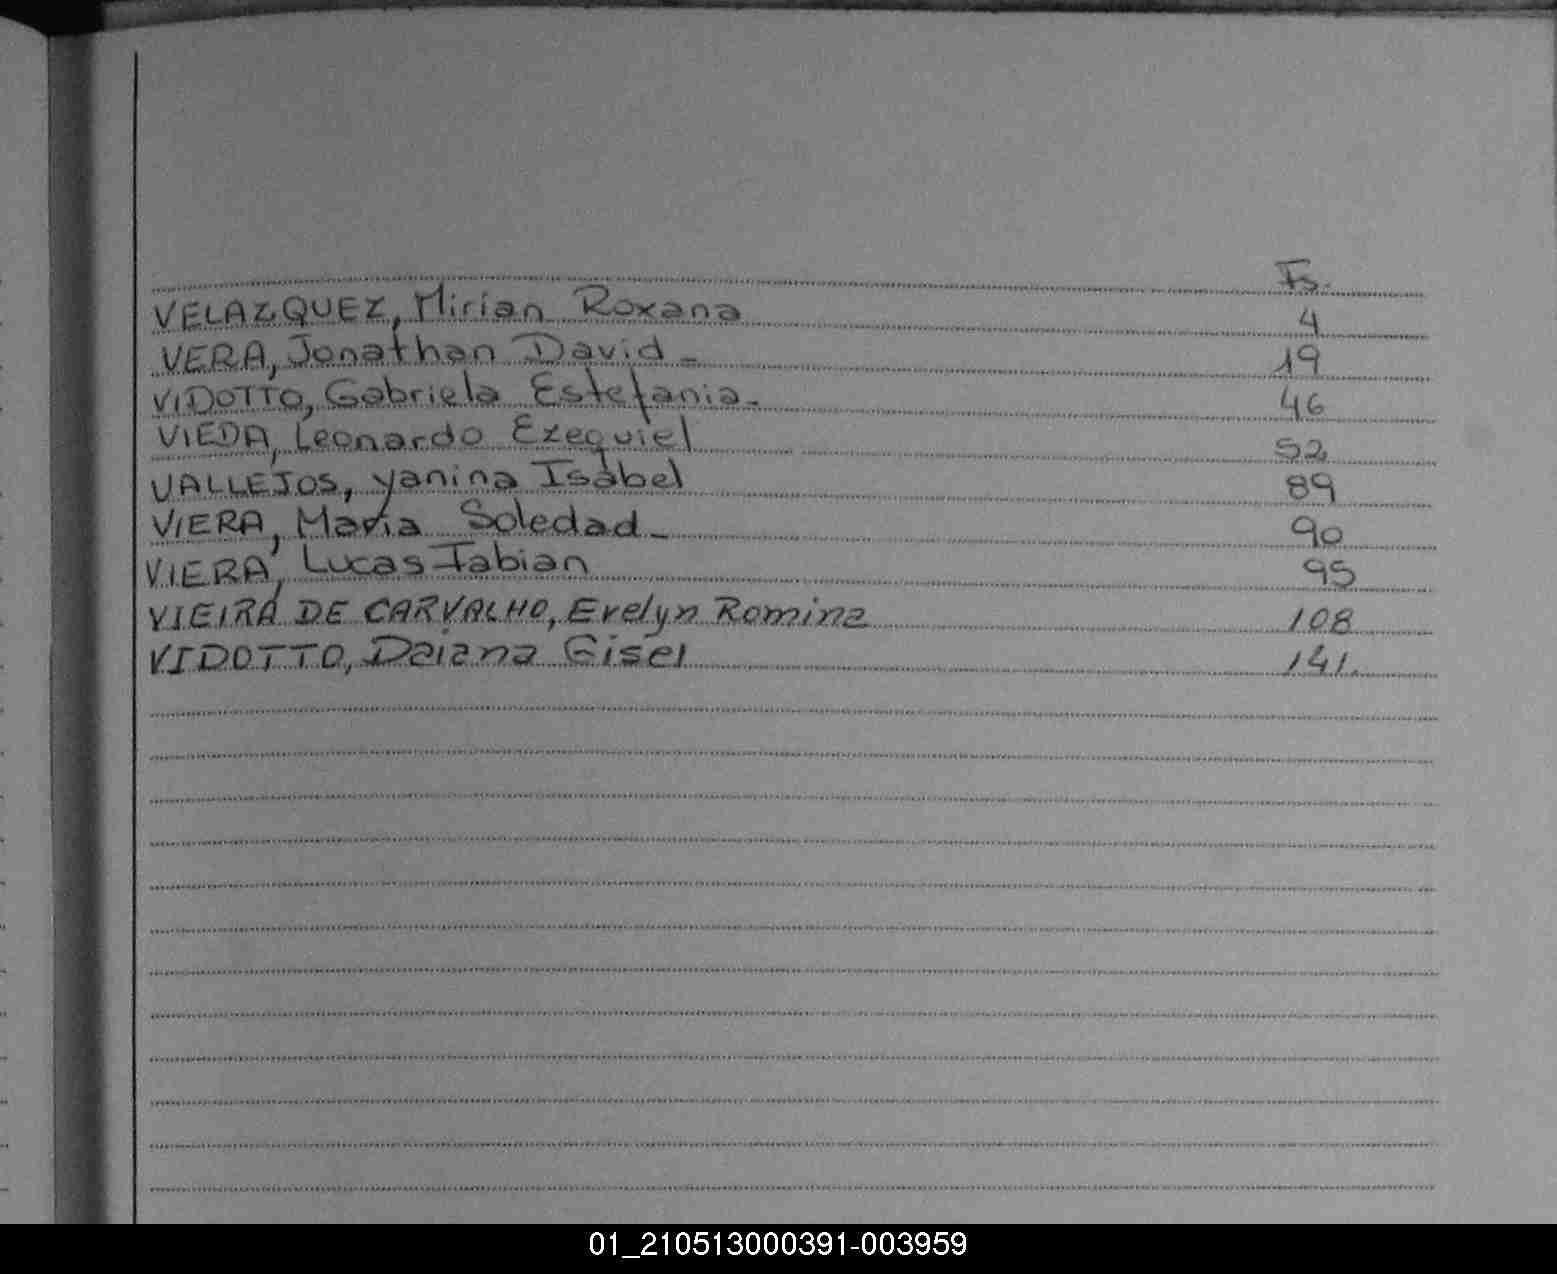 Fs.
VELAZQUEZ, Mirian Roxana 4
VERA, Jonathan David - 19
VIDOTTO, Gabriela Estefania - 46
VIEDA, Leonardo Ezequiel 52
VALLEJOS, Yanina Isabel 89
VIERA, Maria Soledad - 90
VIERA, Lucas Fabian 95
VIEIRA DE CARVALHO, Evelyn Romina 108
VIDOTTO, Daiana Gisel 141.
01_210513000391-003959